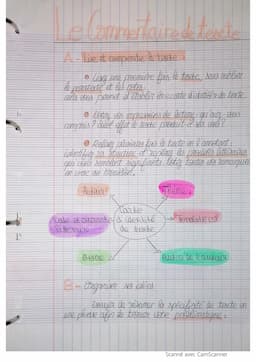 Le Commentaire de texte
A - Lire et comprendre le texte :
• Lisez une première fois le texte, sans oublier
le paratexte et les notes.
cela vous permet d'établir la carte d'identité du texte.
• Notez vos impressions de lecture : qu'avez-vous
compris ? Quel effet le texte produit-il sur vous ?
• Relisez plusieurs fois le texte en l'annotant :
identifiez sa structure et repérez les procédés littéraires
qui vous semblent significatifs. Notez toutes vos remarques
au brouillon.
Auteur
Thème
Carte
d'identité
du texte
Genre
B - Organiser ses idées
de relever la spécificité du texte en
une phrase afin de trouver votre problématique.
Scanné avec CamScanner